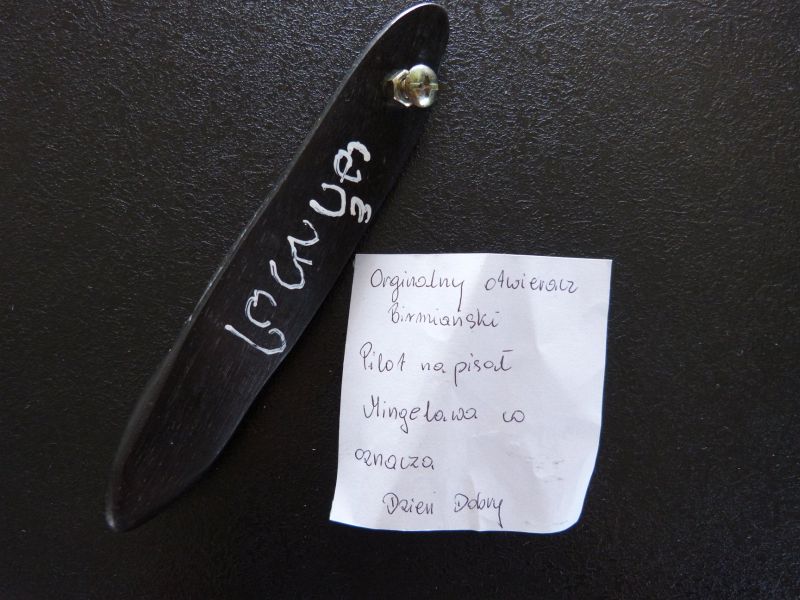 Orginalny otwieracz
Birmiański
Pilot napisał
Mingelawa co
oznacza
Dzień Dobry